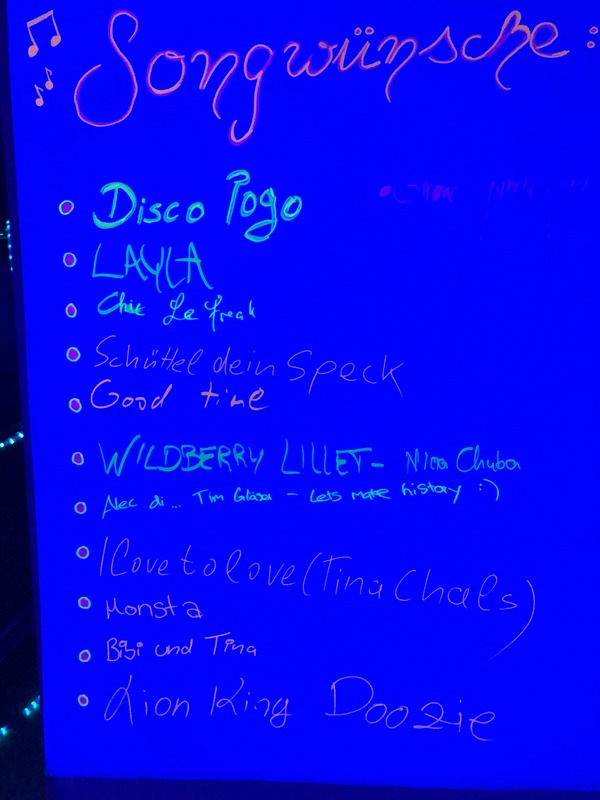 Songwünsche:
Disco Pogo
LAYLA
Chic Le freak
Schüttel dein Speck
Good time
WILDBERRY LILLET- Nina Chuba
Alec di... Tim Gläser - Lets make history :)
I Love to love (Tina Chals)
Monsta
Bibi und Tina
Lion King Doozie